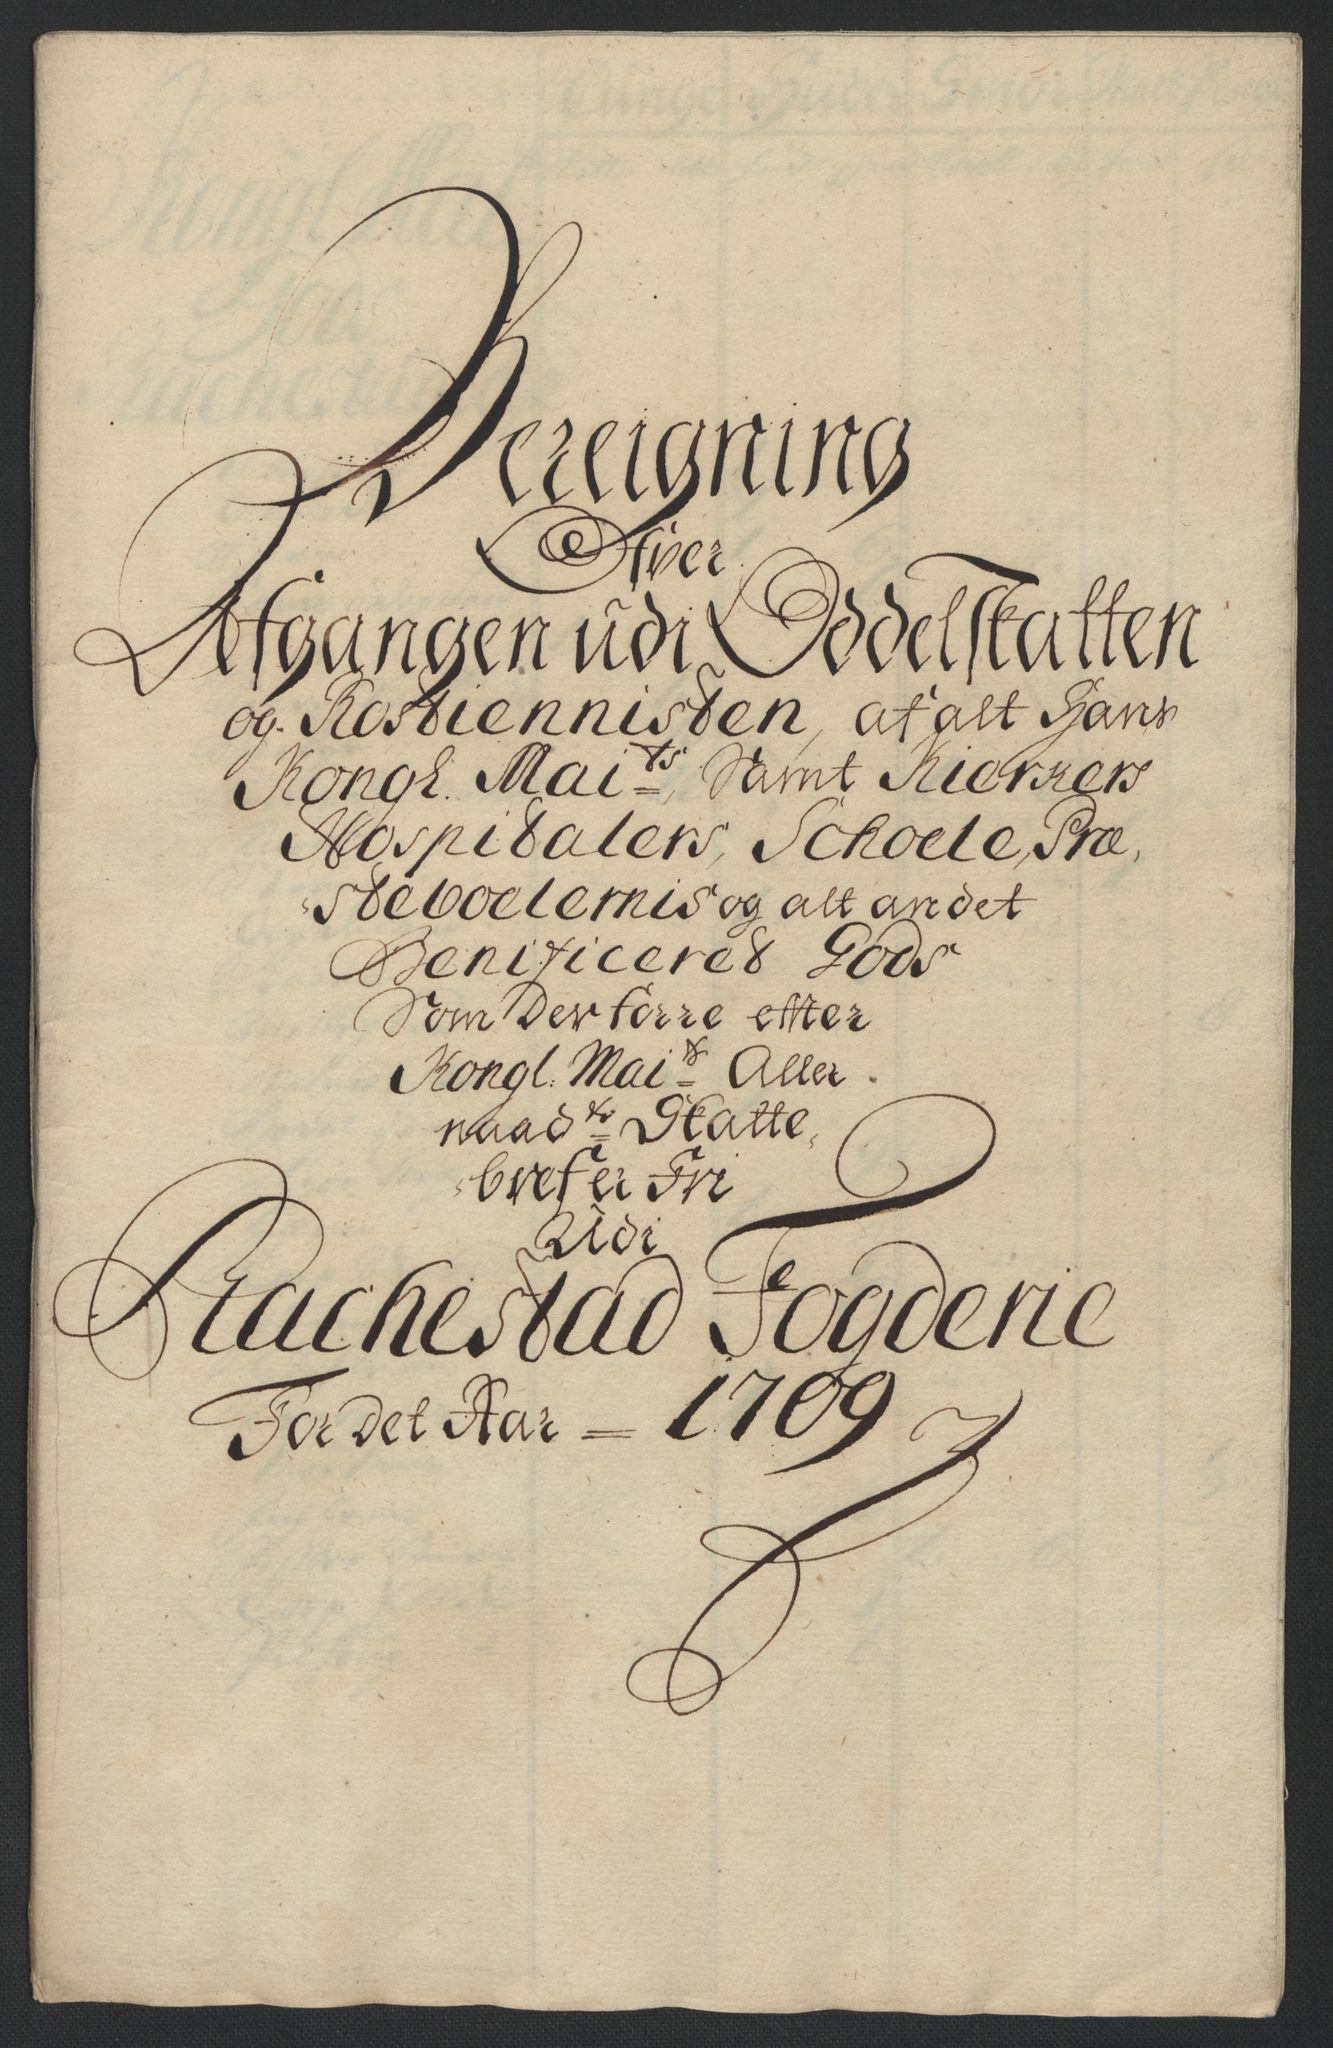 Bereigning
Ofver
Afgangen udi Oddelskatten
og Rostiennisten, af alt Hans
Kongl. Mai:ts, Samt Kierkers
Hospitalers, Schoele, Præ,
steboelernis og alt andet
Benificered Gods
Som Derforre effter
Kongl: Mai:ts Aller
naad:te Skatte,
bref er Fri
Udi
Rachestad Fogderie
For det Aar = 1709